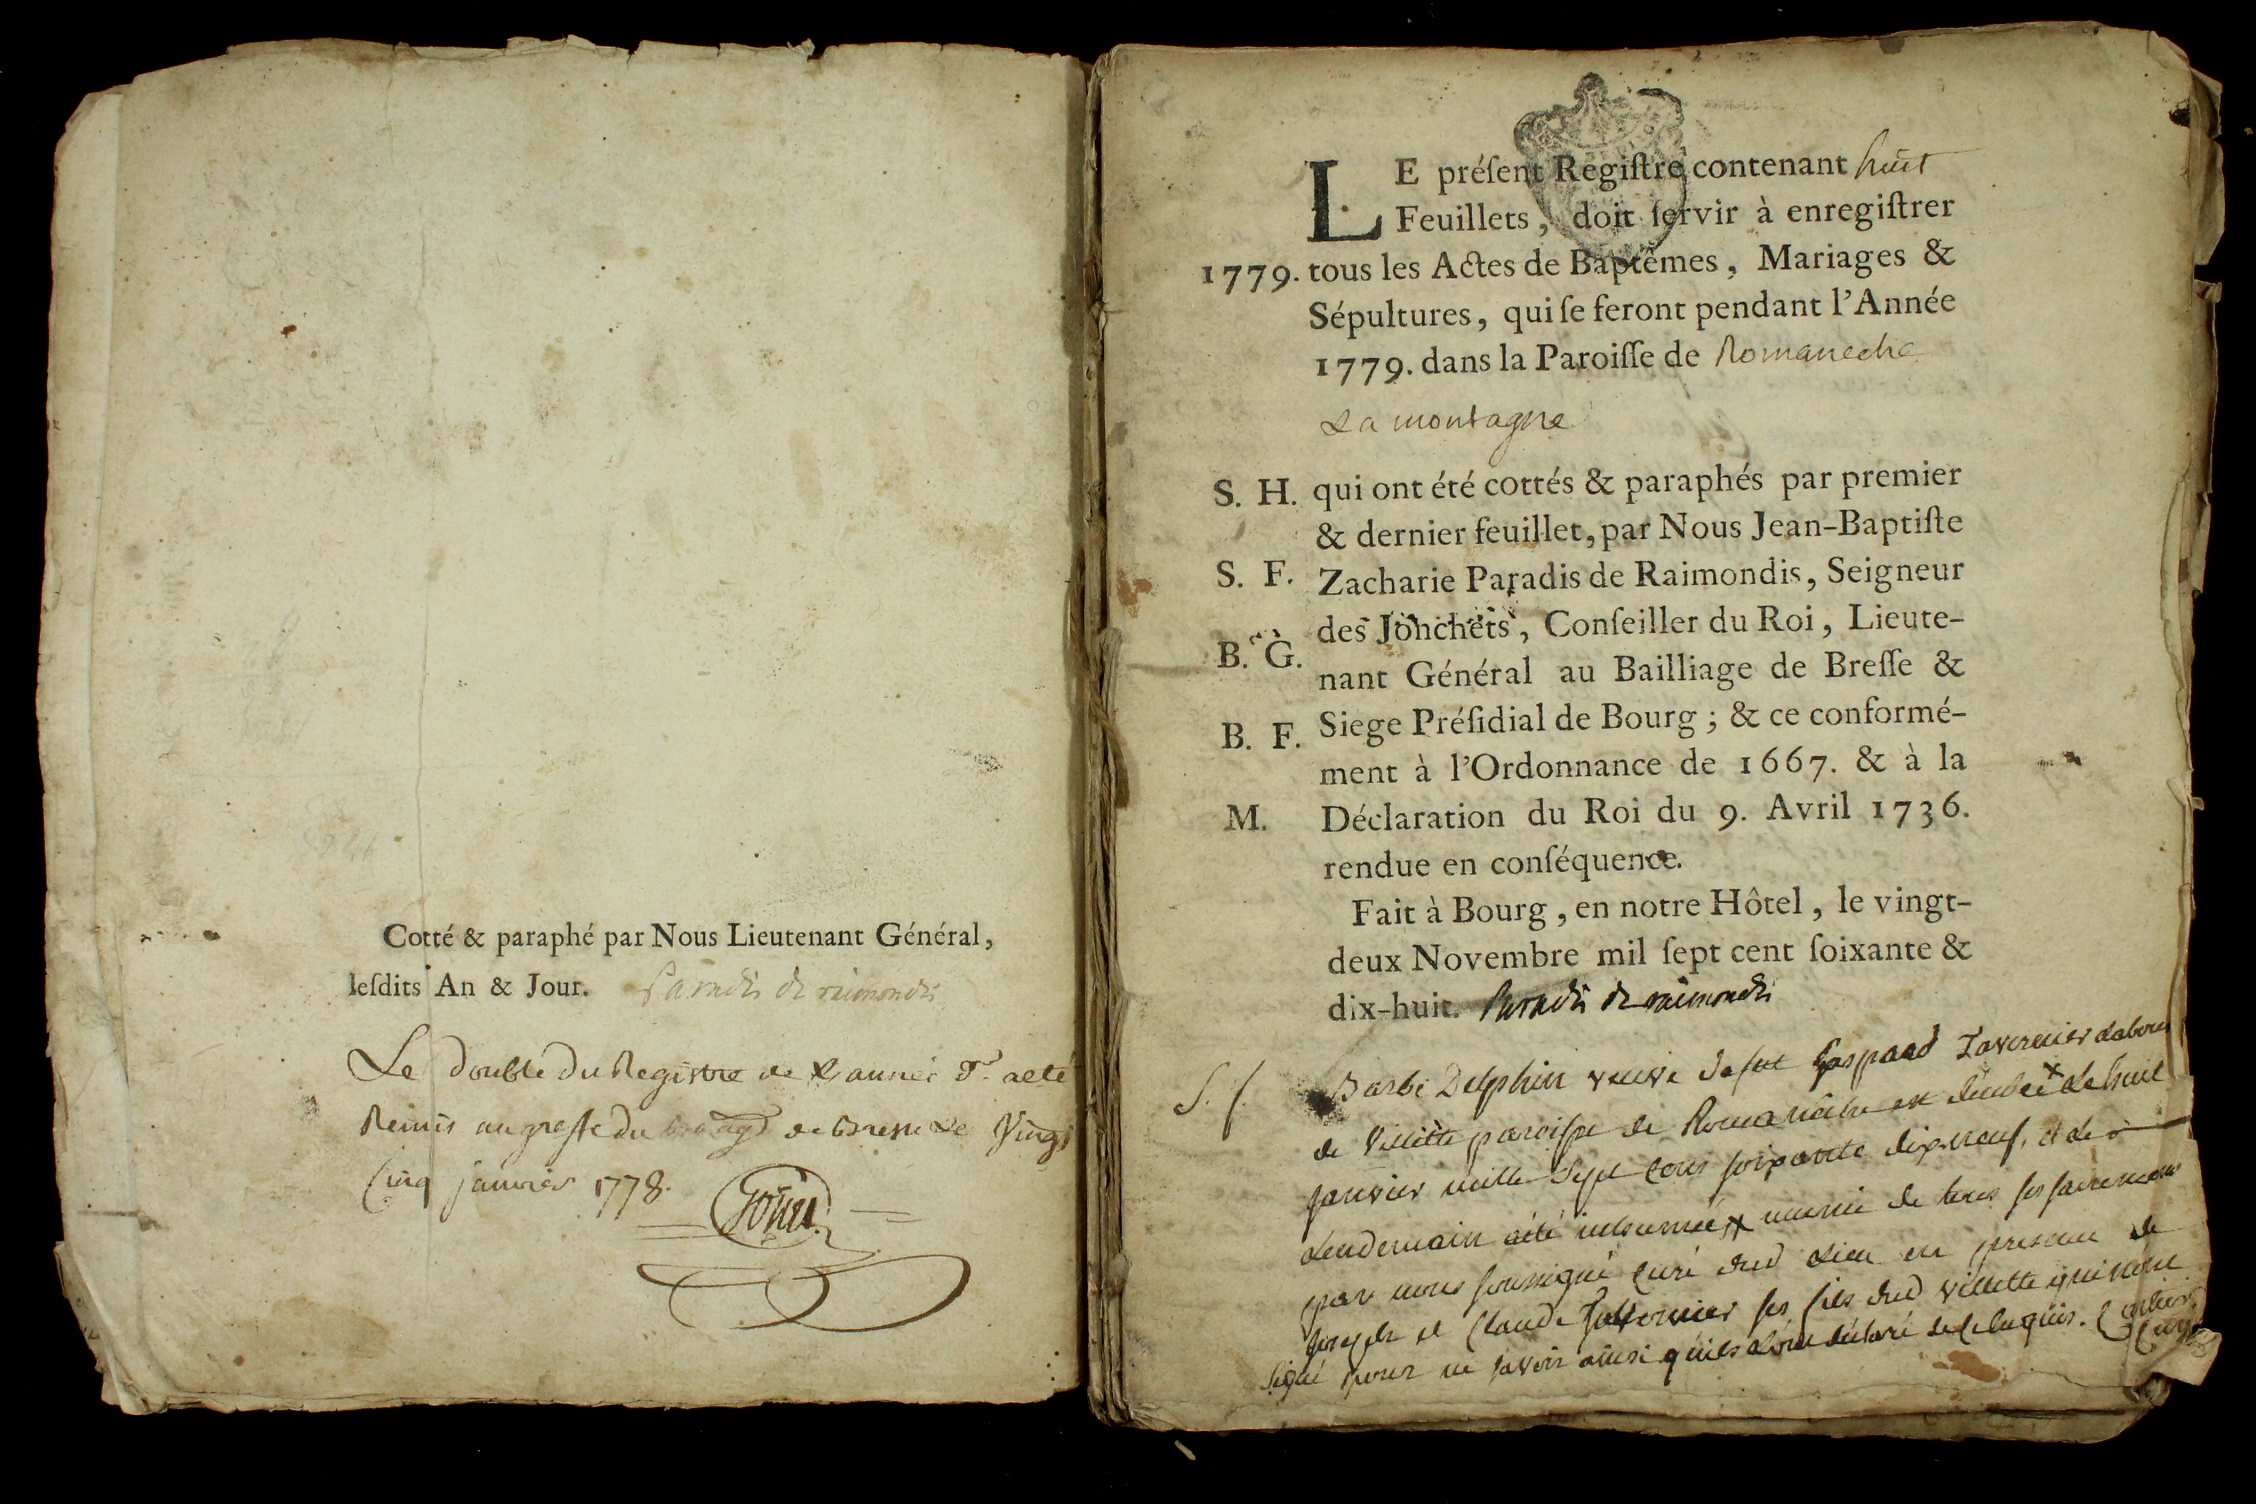 Cotté & paraphé par Nous Lieutenant Général,
leſdits An & Jour. Paradis de raimondis
Le double du Registre de L'année dr. a eté
Remis au greffe du de Bresse Le Vingt
Cinq janvier 1778.
LE préſent Regiſtre contenant huit
Feuillets, doit ſervir à enregiſtrer
1779. tous les Actes de Baptêmes, Mariages &
Sépultures, qui ſe feront pendant l'Année
1779. dans la Paroiſſe de Romaneche
La montagne
S. H. qui ont été cottés & paraphés par premier
& dernier feuillet, par Nous Jean-Baptiſte
S. F. Zacharie Paradis de Raimondis, Seigneur
des Jonchets, Conſeiller du Roi, Lieute-
B. G. nant Général au Bailliage de Breſſe &
B. F. Siege Préſidial de Bourg ; & ce conformé-
ment à l'Ordonnance de 1667. & à la
M. Déclaration du Roi du 9. Avril 1736.
rendue en conſéquence.
Fait à Bourg, en notre Hôtel, le vingt-
deux Novembre mil ſept cent ſoixante &
dix-huit. Paradis de raimondis
S. f. Barbe Delphin veuve de fut Gaspard Tavernier labour
de Villette paroisse de Romanêche est décedée x le huit
janvier mille sept cens soixante dix-neuf, et le
lendemain a été inhumée x munie de tous ses sacremens
par nous soussigné curé dud lieu en presence de
joseph et Claude Tavernier ses fils dud villette qui n'ont
signé pour ne savoir ainsi qu'ils l'ont déclaré de ce enquis.
curé